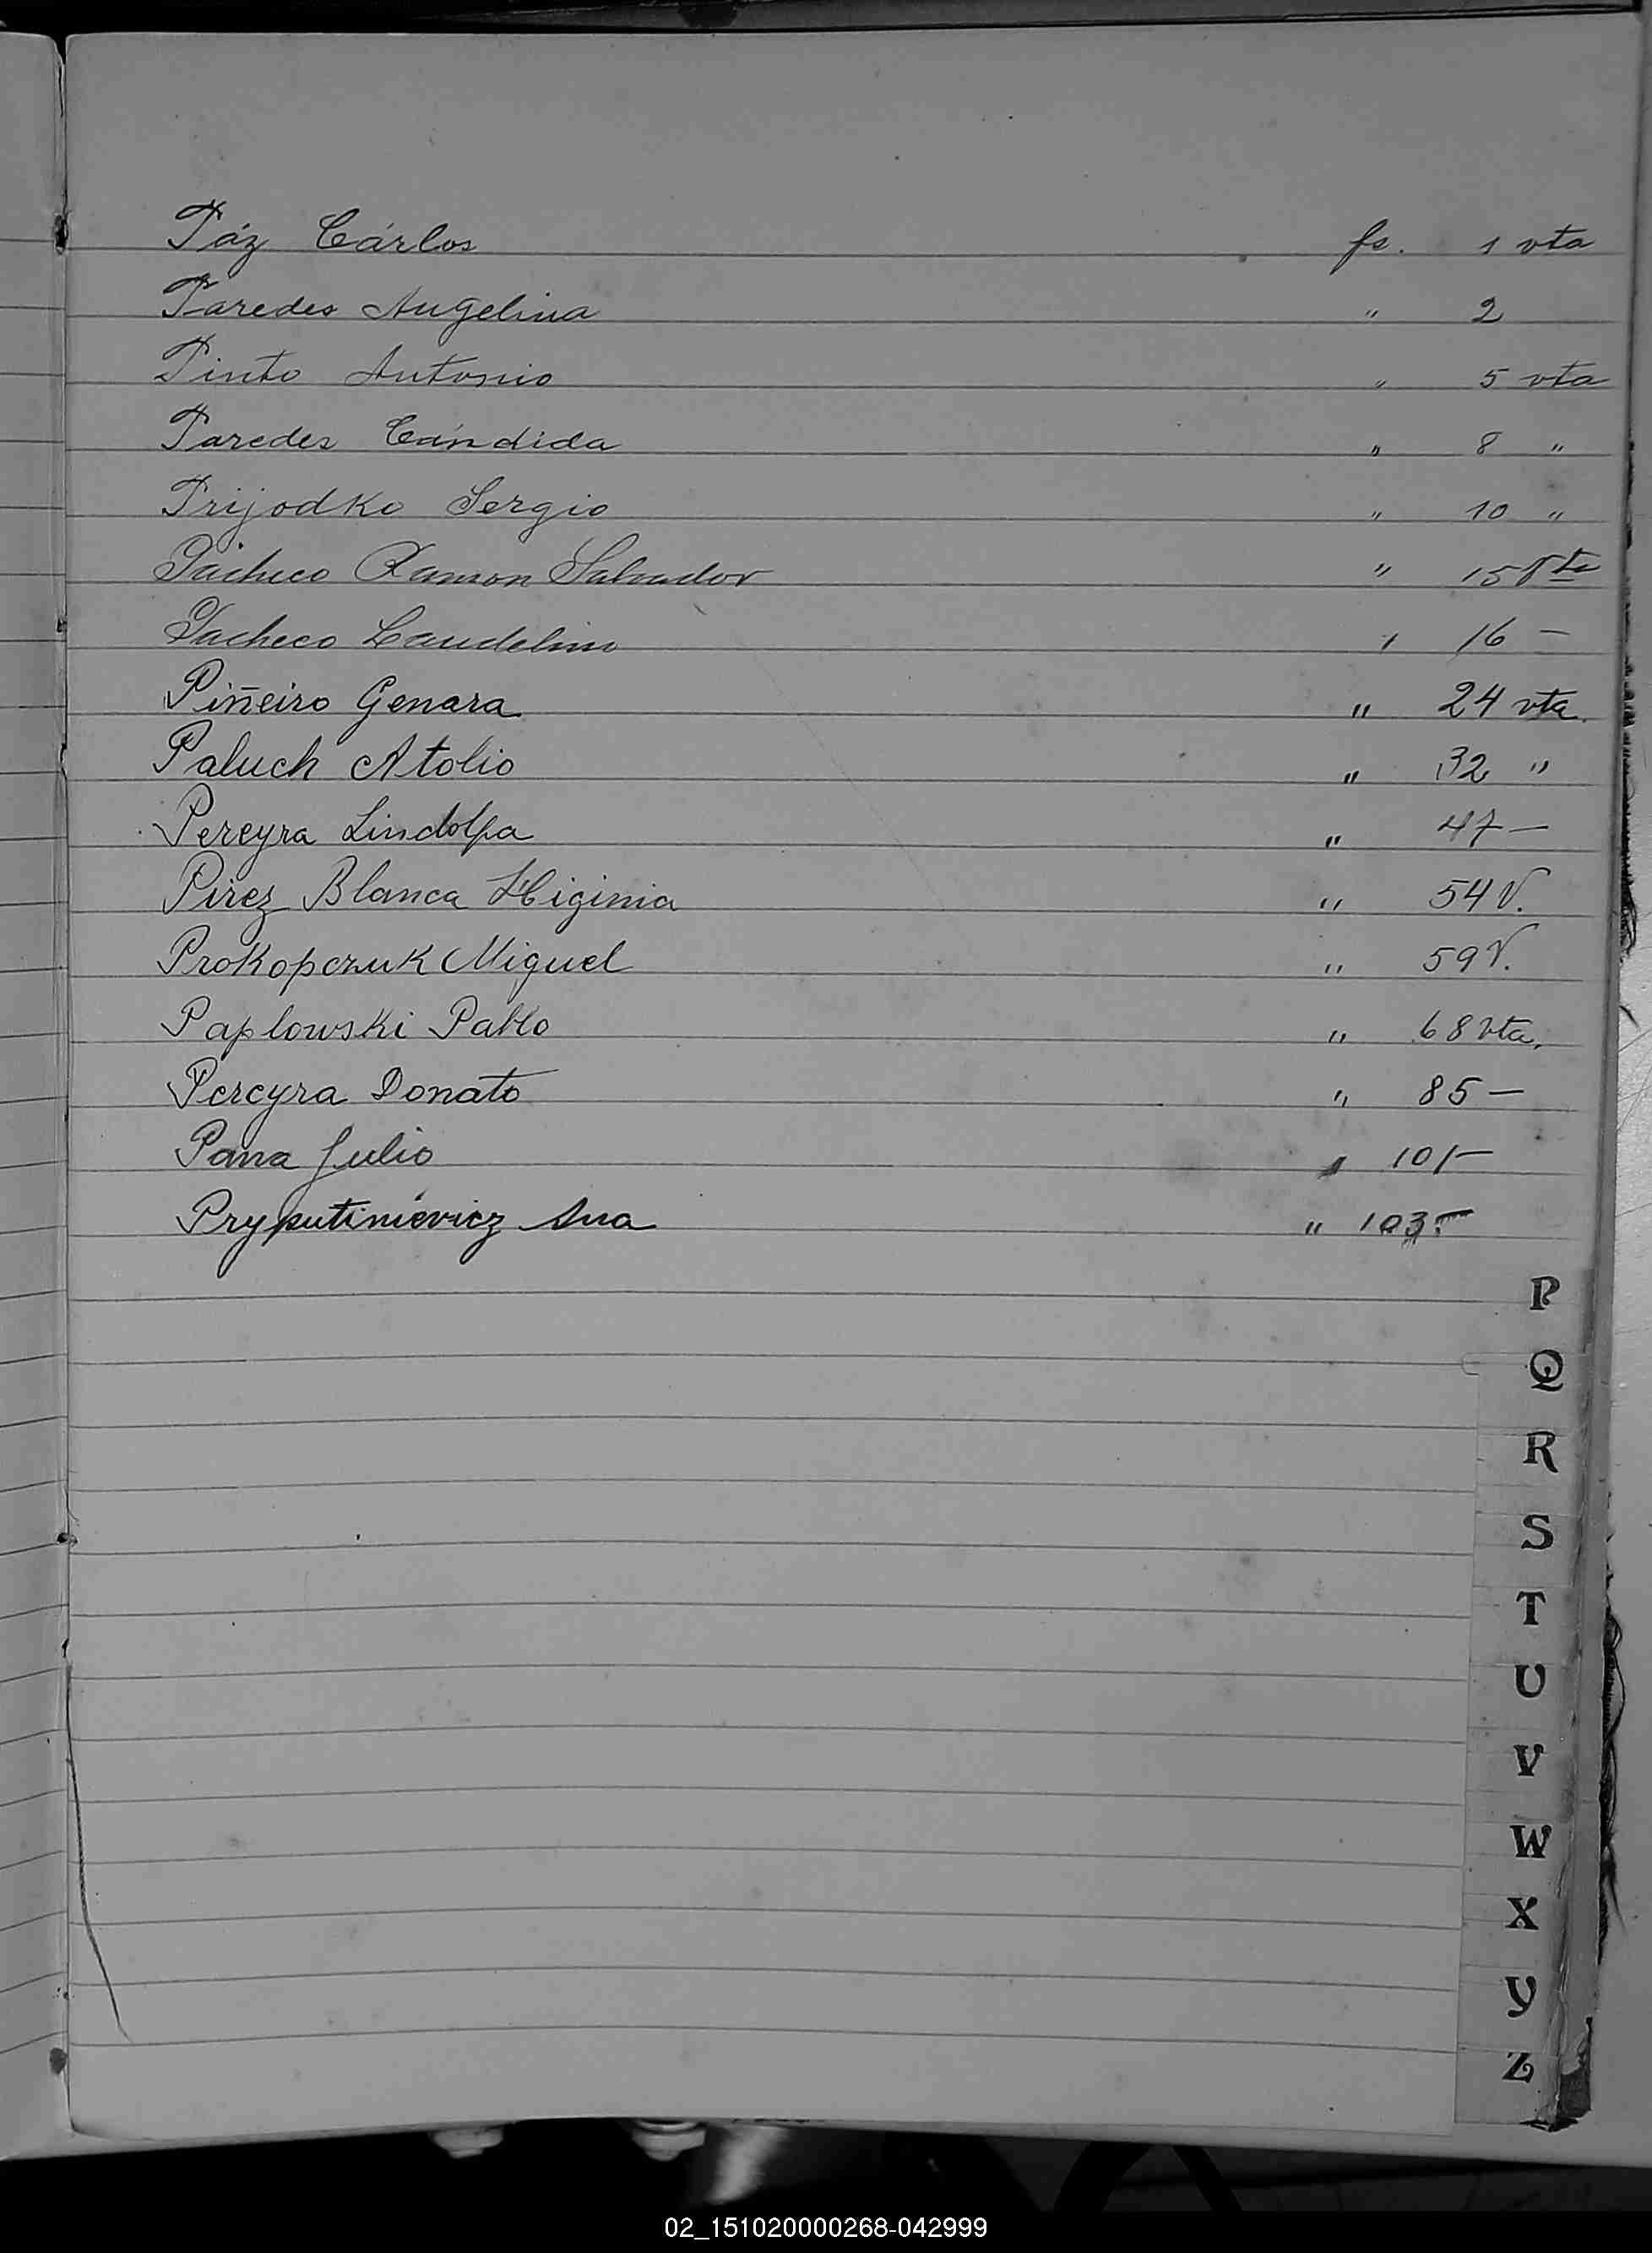 Páz Cárlos fs. 1 vta
Paredes Angelina " 2
Pinto Antonio " 5 vta
Paredes Cándida " 8 "
Prijodko Sergio " 10 "
Pacheco Ramon Salvador " 15 Vta
Pacheco Laudelino " 16 —
Piñeiro Genara " 24 vta.
Paluch Atolio " 32 "
Pereyra Lindolfa " 47 —
Pirez Blanca Higinia " 54 V.
Prokopczuk Miguel " 59 V.
Paplowski Pablo " 68 Vta.
Pereyra Donato " 85 —
Pana Julio " 101 —
Pryputinievicz Ana " 103 —
P
Q
R
S
T
U
V
W
X
Y
Z
02_151020000268-042999